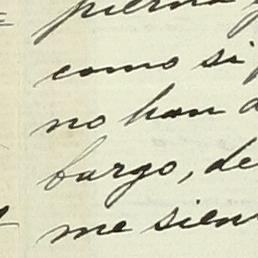 pierna
como si
no han
bargo, de
me sien